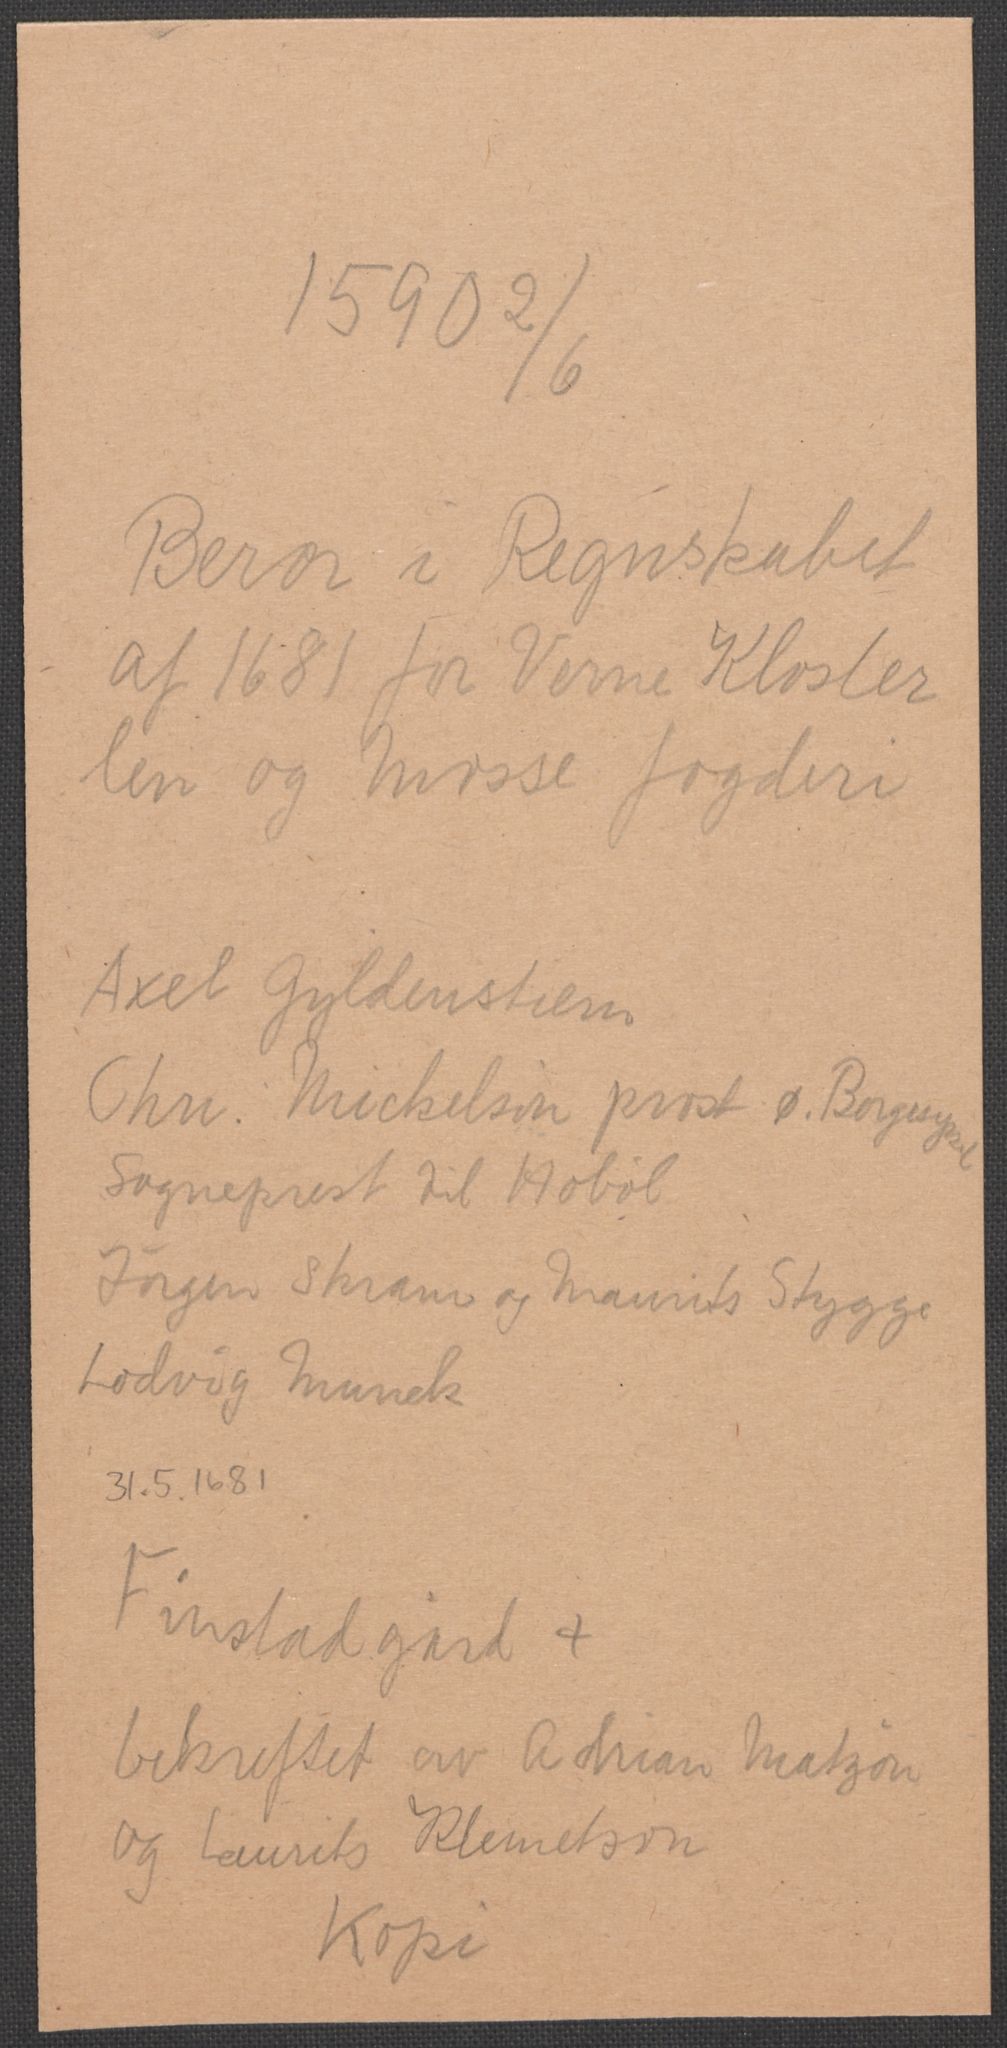 1590 2/6
Beror i Regnskabet
af 1681 for Verne Kloster
len og Mosse fogderi
Axel Gyldenstiern
Chr. Mickelsön prost ø. Borgesyssel
Sogneprest til Hobøl
Jörgen Skram og Maurits Stygge
Lodvig Munck
31.5.1681
Finstad gård +
bekreftet av Adrian Matzön
og Laurits Klemetson
Kopi